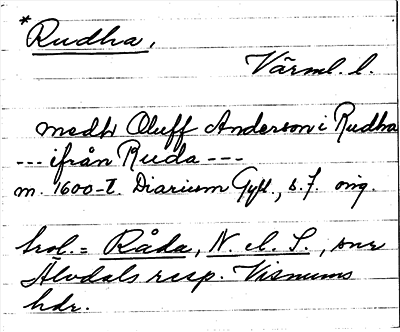 * Rudha,
Värml. l.
medh Oluff Anderson i Rudha
--- ifrån Ruda ---
m. 1600-t. Diarium Gyll., s. 7. orig.
trol. = Råda, N. el. S.,
Älvdals resp. Visnums
hdr.